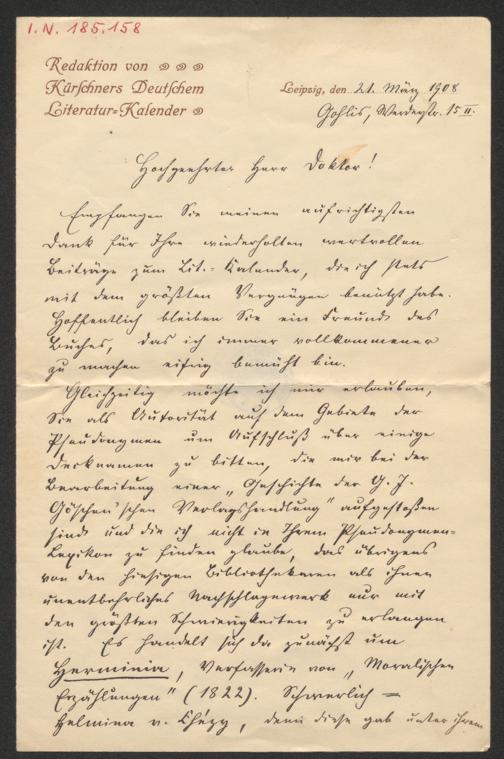 I. N. 185.158
Redaktion von
Kürschners Deutschem
Literatur-Kalender
Leipzig, den 21. März 1908
Gohlis, Werderstr. 15 II.
Hochgeehrter Herr Doktor!
Empfangen Sie meinen aufrichtigsten
Dank für Ihre wiederholten wertvollen
Beiträge zum Lit.-Kalender, die ich stets
mit dem größten Vergnügen benützt habe.
Hoffentlich bleiben Sie ein Freund des
Buches, das ich immer vollkommener
zu machen eifrig bemüht bin.
Gleichzeitig möchte ich mir erlauben,
Sie als Autorität auf dem Gebiete der
Pseudonymen um Aufschluß über einige
Decknamen zu bitten, die mir bei der
Bearbeitung einer „Geschichte der G. J.
Göschen'schen Verlagshandlung" aufgestoßen
sind und die ich nicht in Ihrem Pseudonymen-
Lexikon zu finden glaube, das übrigens
von den hiesigen Bibliothekaren als ihnen
unentbehrliches Nachschlagewerk nur mit
den größten Schwierigkeiten zu erlangen
ist. Es handelt sich da zunächst um
Herminia, Verfasserin von „Moralischen
Erzählungen" (1822). Schwerlich =
Helmina v. Chézy, denn diese gab unter ihrem